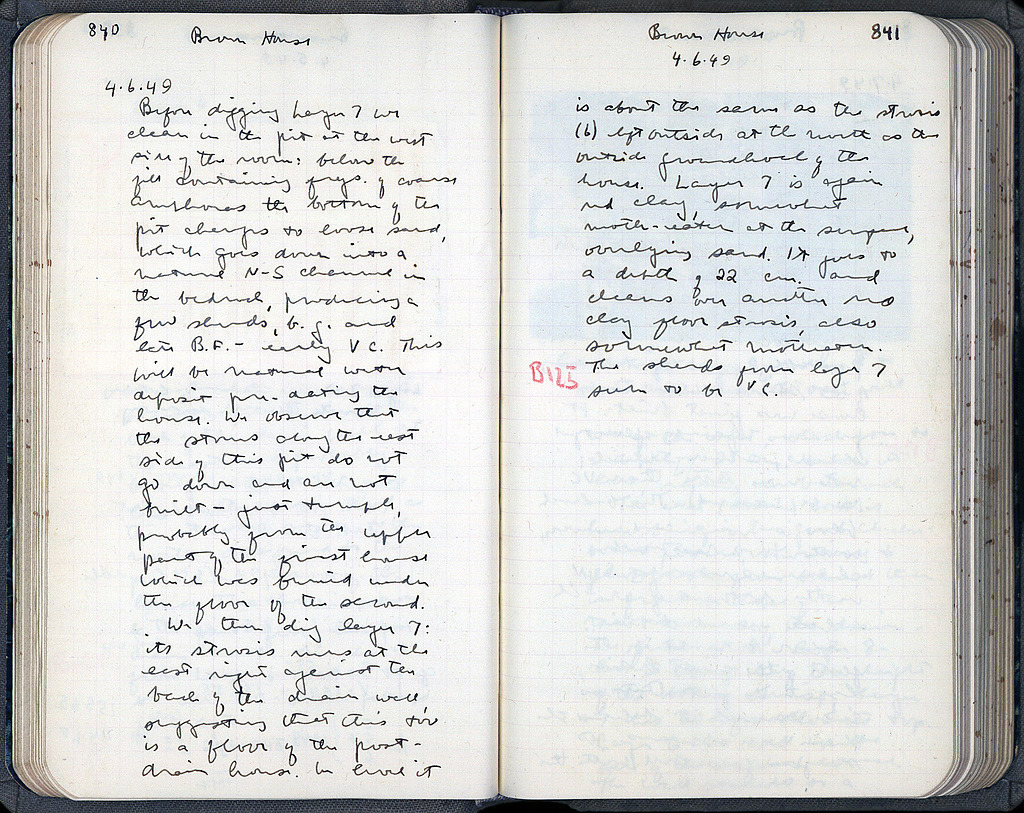 840
Brown House
4.6.49
Before digging Layer 7 we
clean in the pit at the west
side of the room: below the
fill containing frags. of coarse
amphoras the bottom of the
pit changes to loose sand,
which goes down into a
natural N-S channel in
the bedrock, producing a
few sherds, b.g. and
late B.F. - early V c. This
will be natural water
deposit pre-dating the
house. We observe that
the stones along the west
side of this pit do not
go down and are not
built - just tumble,
probably from the upper
part of the first house
which was buried under
the floor of the second.
We then dig layer 7:
its strosis runs at the
east right against the
back of the drain wall,
suggesting that this too
is a floor of the post-
drain house. In level it
Brown House
841
4.6.49
is about the same as the strosis
(6) left outside at the north as the
outside ground level of the
house. Layer 7 is again
red clay, somewhat
moth-eaten at the surface,
overlying sand. It goes to
a depth of 22 cm. and
cleans over another red
clay floor strosis, also
somewhat motheaten.
B125
The sherds from layer 7
seem to be V c.